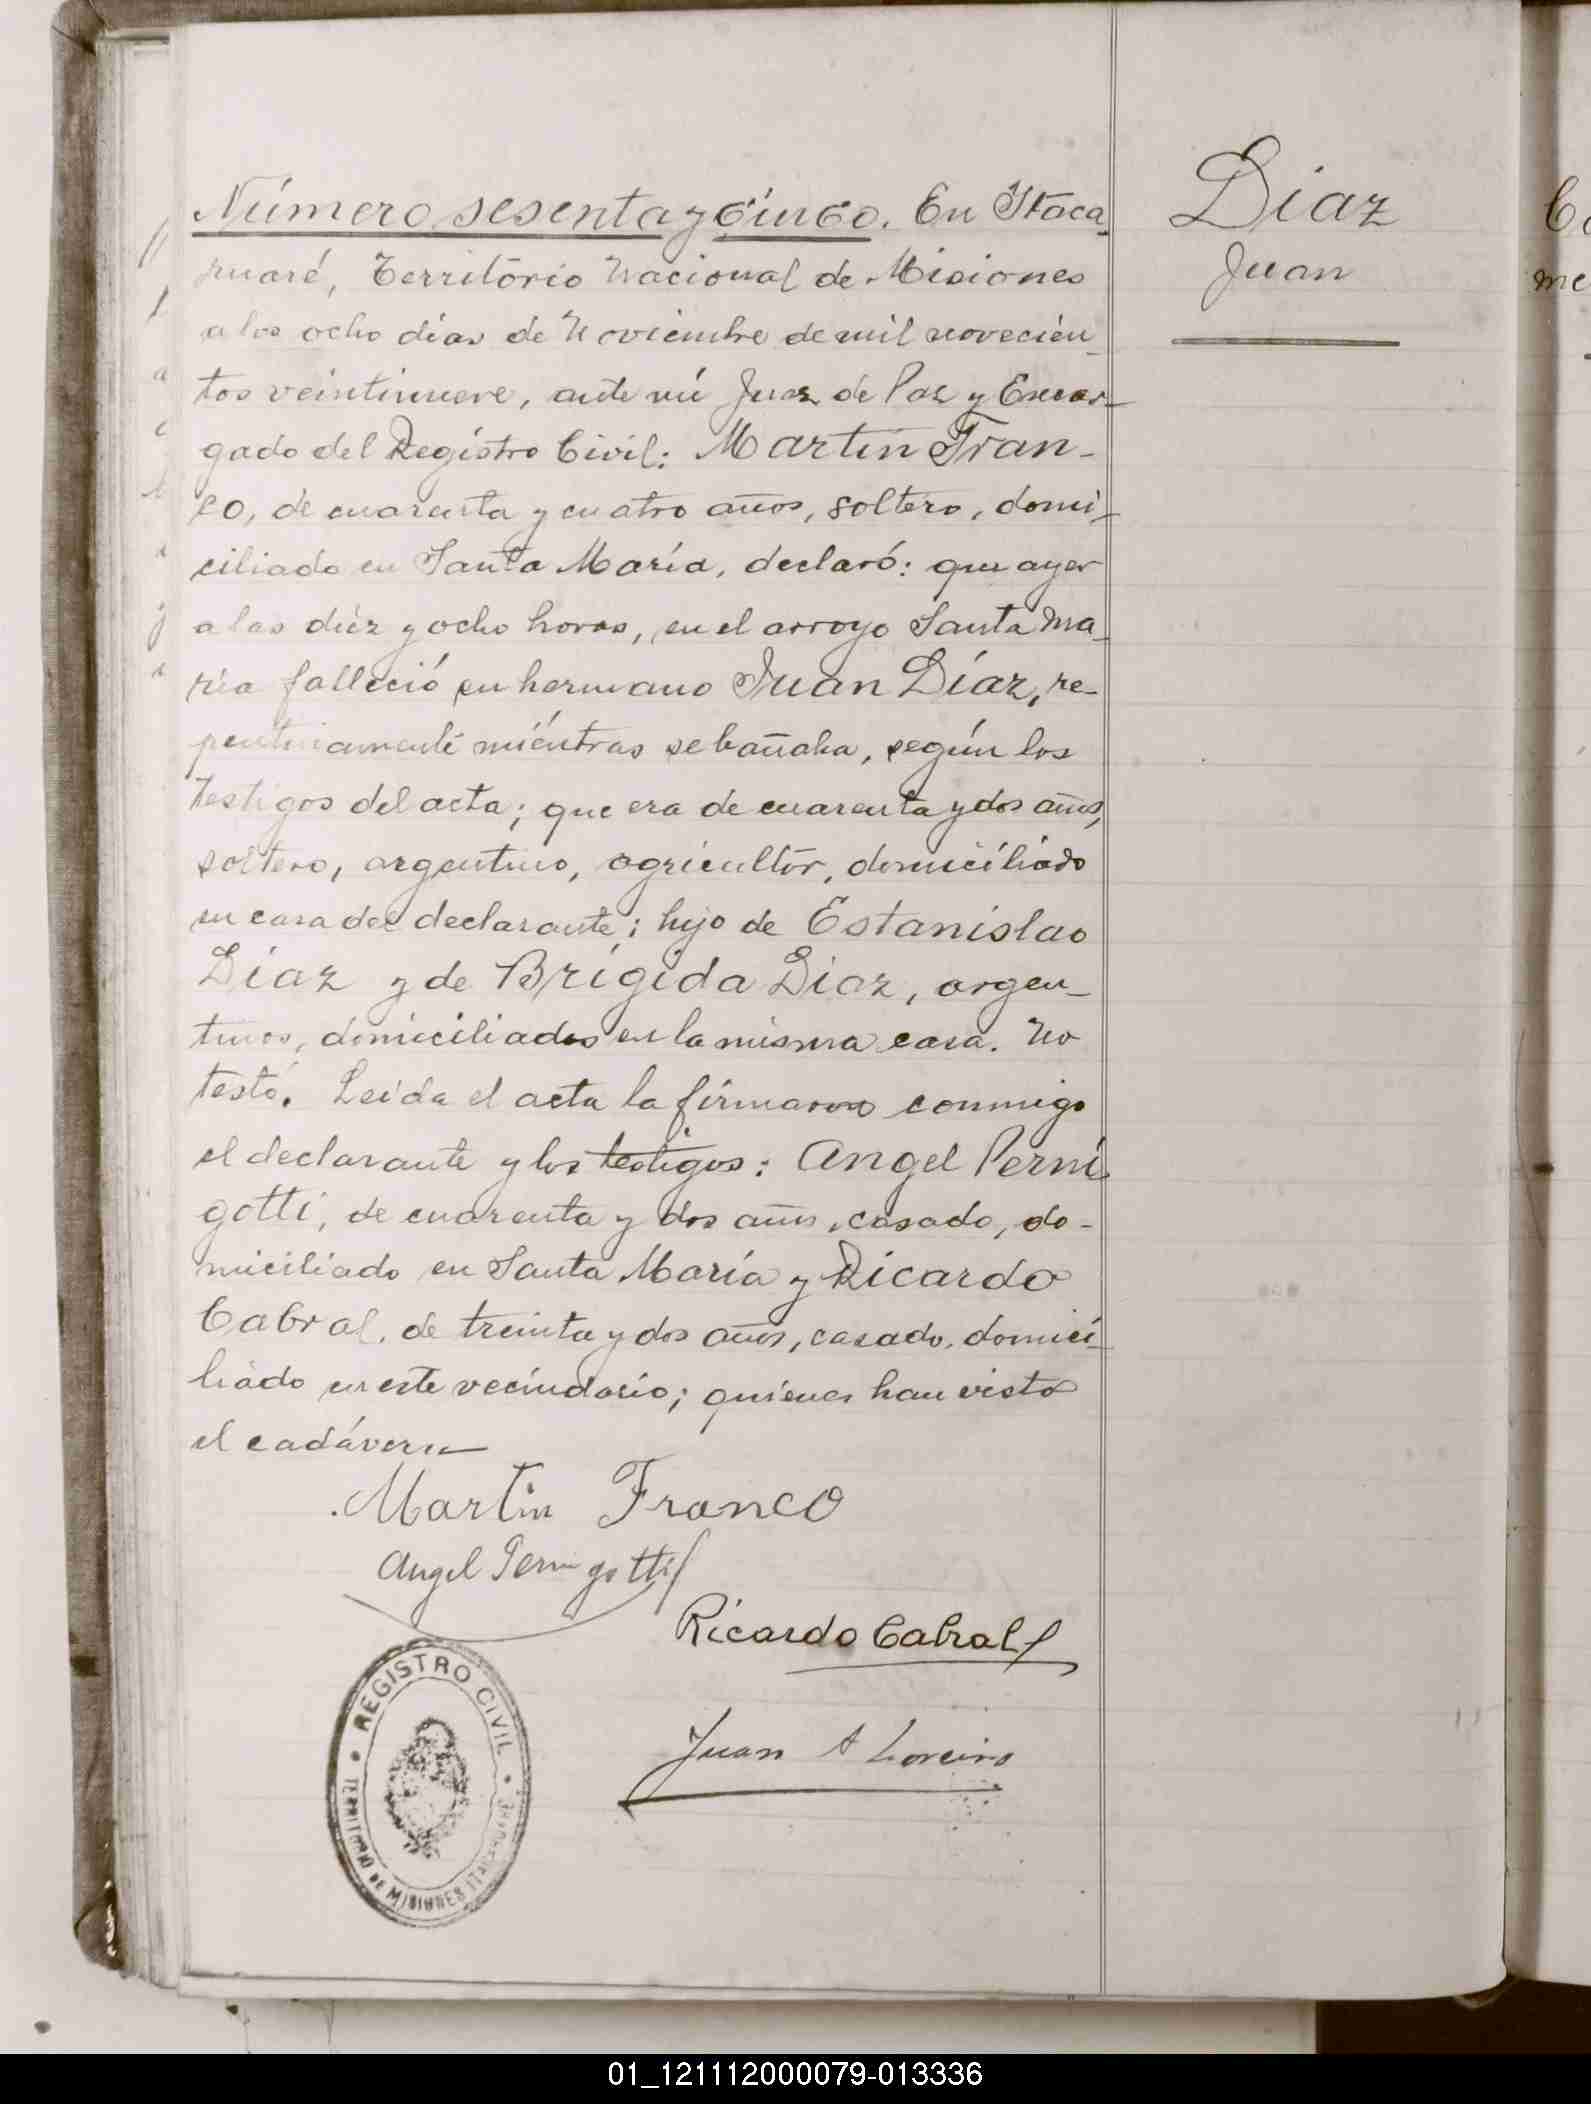 Número sesenta y cinco. En Itaca-
ruaré, Territorio Nacional de Misiones
a los ocho días de Noviembre de mil novecien-
tos veintinueve, ante mí Juez de Paz y Encar-
gado del Registro Civil: Martín Fran-
co, de cuarenta y cuatro años, soltero, domi-
ciliado en Santa María, declaró: que ayer
a las diez y ocho horas, en el arroyo Santa Ma-
ría falleció su hermano Juan Díaz, re-
pentinamente mientras se bañaba, según los
testigos del acta; que era de cuarenta y dos años,
soltero, argentino, agricultor, domiciliado
en casa del declarante; hijo de Estanislao
Díaz y de Brígida Díaz, argen-
tinos, domiciliados en la misma casa. No
testó. Leida el acta la firmaron conmigo
el declarante y los testigos: Angel Perni
gotti, de cuarenta y dos años, casado, do-
miciliado en Santa María y Ricardo
Cabral, de treinta y dos años, casado, domici-
liado en este vecindario; quienes han visto
el cadáver.
Martin Franco
Angel Pernigotti
Ricardo Cabral
Juan A Loreiro
REGISTRO CIVIL
TERRITORIO DE MISIONES ITACARUARÉ
Díaz
Juan
01_121112000079-013336